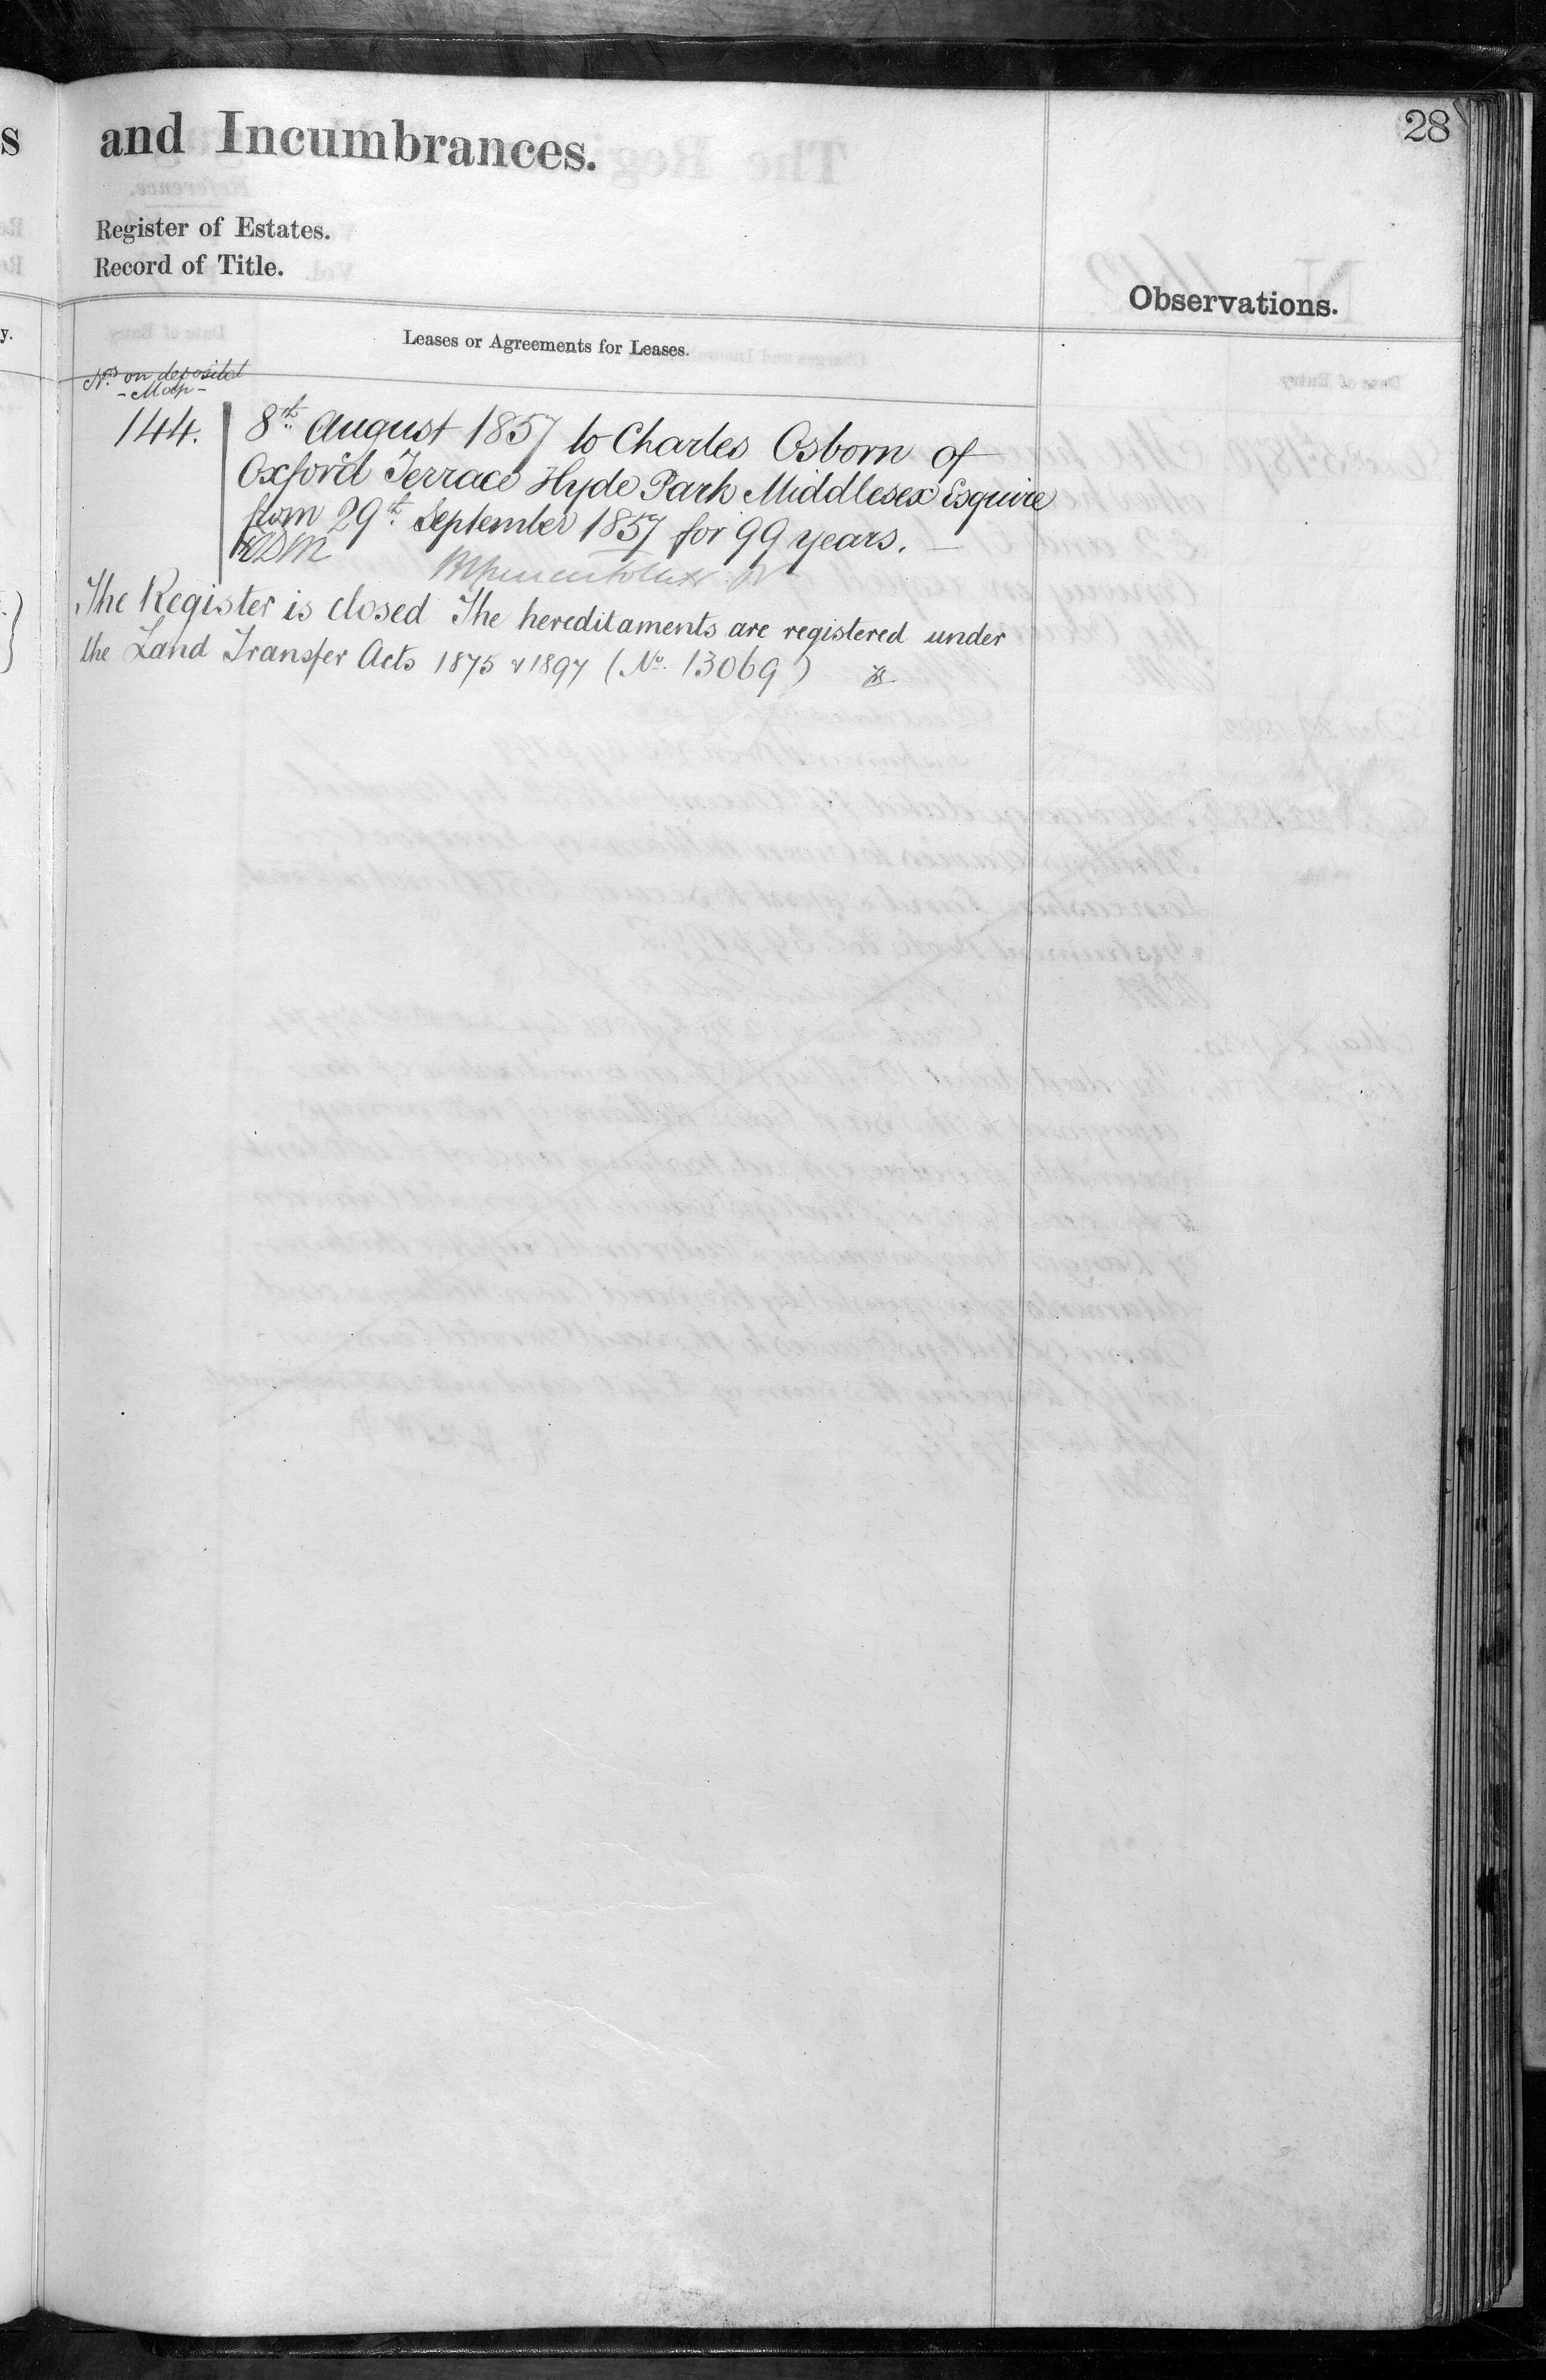 28
and Incumbrances.
Register of Estates.
Record of Title.
Observations.
Leases or Agreements for Leases.
Nos on deposited
- Map -
144. 8th August 1857 to Charles Osborn of
Oxford Terrace Hyde Park Middlesex Esquire
from 29th September 1857 for 99 years. —
The Register is closed The hereditaments are registered under
the Land Transfer Acts 1875 & 1897 (No. 13069)